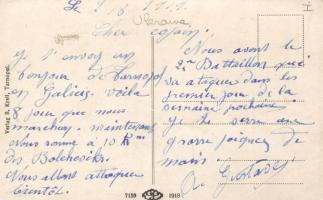 Le 5/8 1919
Ukraine
Cher copain
Je t'envoy un
bonjour de Tarnopol
en Galicie. voila
8 jour que nous
marchon. maintenant
Nous somme à 10 Km
des Bolcheviks.
Nous allons attaquer
bientôt.
Nous avont le
2me Battaillon qui
va ataquer dans les
premier jour de la
semaine prochaine
Je te serre une
grosse poigner de
main
Gustave
Verlag R. Kroll, Tarnopol.
7159
1918
I